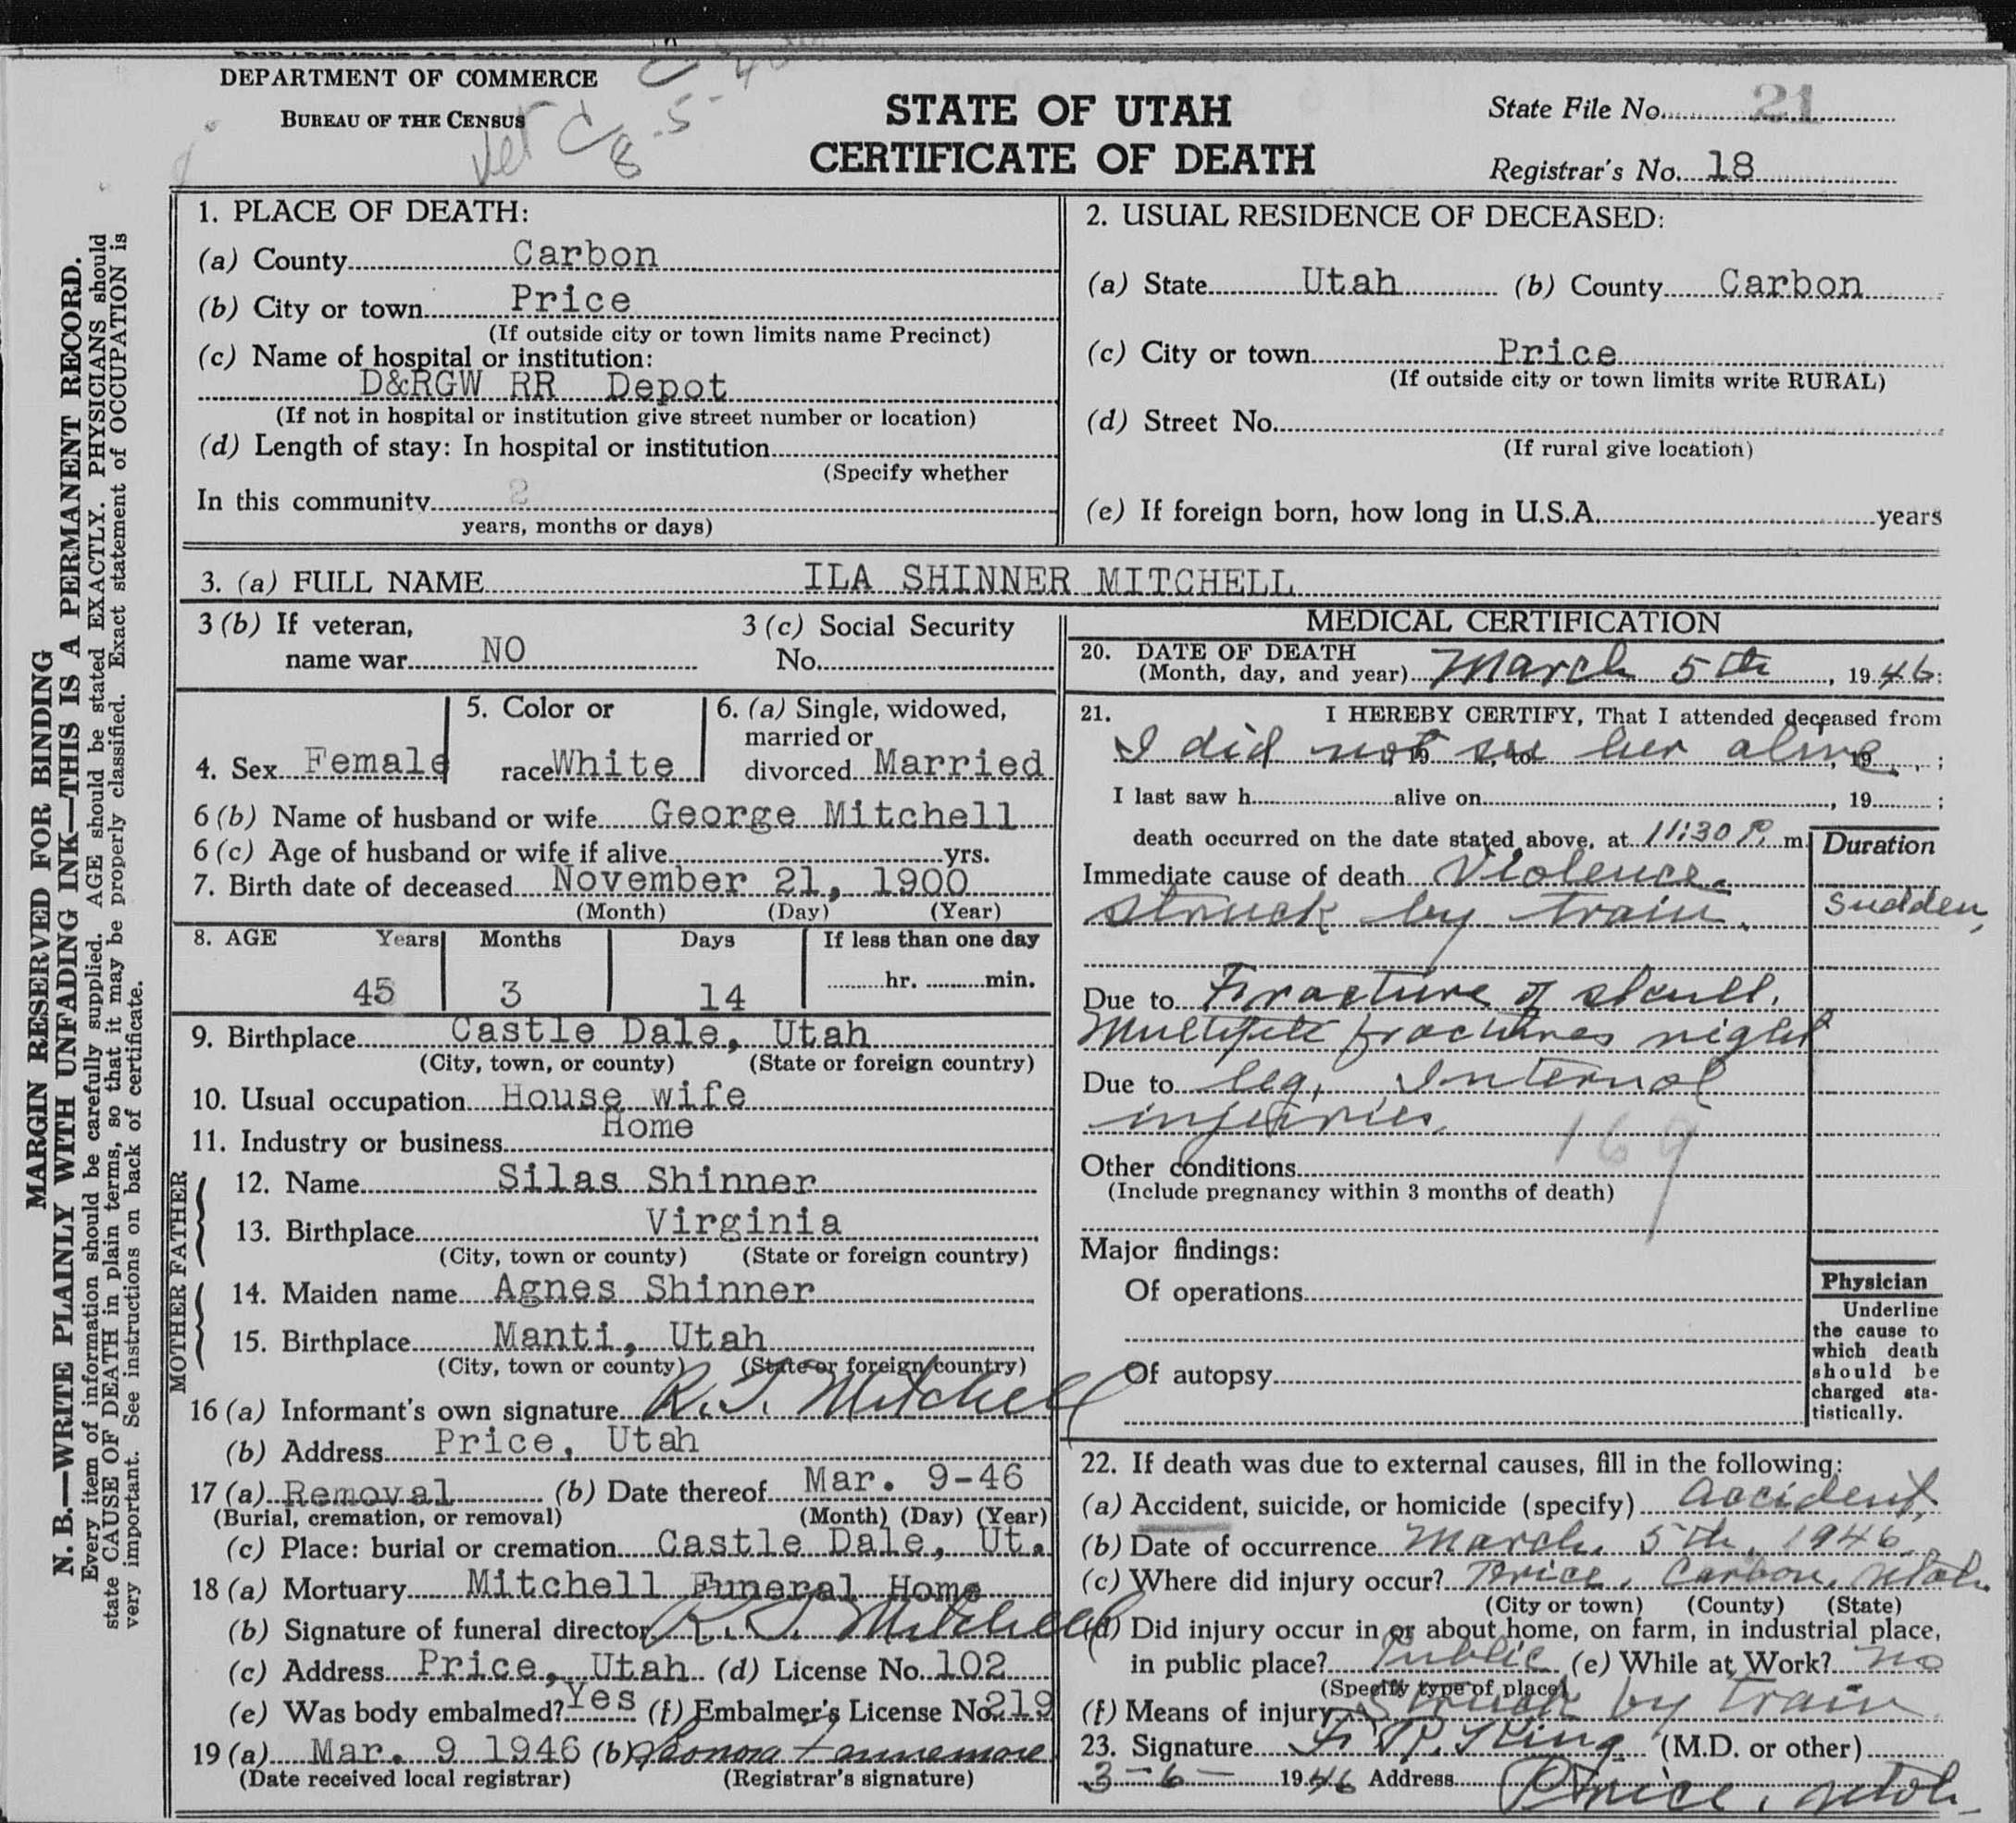 DEPARTMENT OF COMMERCE
BUREAU OF THE CENSUS
STATE OF UTAH
CERTIFICATE OF DEATH
State File No. 21
Registrar's No. 18
MARGIN RESERVED FOR BINDING
N. B.—WRITE PLAINLY WITH UNFADING INK—THIS IS A PERMANENT RECORD.
Every item of information should be carefully supplied. AGE should be stated EXACTLY. PHYSICIANS should
state CAUSE OF DEATH in plain terms, so that it may be properly classified. Exact statement of OCCUPATION is
very important. See instructions on back of certificate.
1. PLACE OF DEATH:
(a) County Carbon
(b) City or town Price
(If outside city or town limits name Precinct)
(c) Name of hospital or institution:
D&RGW RR Depot
(If not in hospital or institution give street number or location)
(d) Length of stay: In hospital or institution
(Specify whether
In this community 2
years, months or days)
2. USUAL RESIDENCE OF DECEASED:
(a) State Utah (b) County Carbon
(c) City or town Price
(If outside city or town limits write RURAL)
(d) Street No.
(If rural give location)
(e) If foreign born, how long in U.S.A. years
3. (a) FULL NAME ILA SHINNER MITCHELL
3 (b) If veteran,
name war NO
3 (c) Social Security
No.
4. Sex Female
5. Color or
race White
6. (a) Single, widowed,
married or
divorced Married
6 (b) Name of husband or wife George Mitchell
6 (c) Age of husband or wife if alive yrs.
7. Birth date of deceased November 21, 1900
(Month) (Day) (Year)
8. AGE Years Months Days If less than one day
45 3 14 hr. min.
9. Birthplace Castle Dale, Utah
(City, town, or county) (State or foreign country)
10. Usual occupation House wife
11. Industry or business Home
FATHER
12. Name Silas Shinner
13. Birthplace Virginia
(City, town or county) (State or foreign country)
MOTHER
14. Maiden name Agnes Shinner
15. Birthplace Manti, Utah
(City, town or county) (State or foreign country)
16 (a) Informant's own signature R. T. Mitchell
(b) Address Price, Utah
17 (a) Removal (b) Date thereof Mar. 9-46
(Burial, cremation, or removal) (Month) (Day) (Year)
(c) Place: burial or cremation Castle Dale, Ut.
18 (a) Mortuary Mitchell Funeral Home
(b) Signature of funeral director R. T. Mitchell
(c) Address Price, Utah (d) License No. 102
(e) Was body embalmed? Yes (f) Embalmer's License No. 219
19 (a) Mar. 9 1946 (b)
(Date received local registrar) (Registrar's signature)
MEDICAL CERTIFICATION
20. DATE OF DEATH
(Month, day, and year) March 5th, 1946
21. I HEREBY CERTIFY, That I attended deceased from
I did not see her alive, 19 ;
I last saw h alive on , 19 ;
death occurred on the date stated above, at 11:30 P. m.
Duration
Immediate cause of death Violence.
struck by train. Sudden,
Due to Fracture of skull.
Multiple fractures right
Due to leg, Internal
injuries.
169
Other conditions
(Include pregnancy within 3 months of death)
Major findings:
Of operations
Of autopsy
Physician
Underline
the cause to
which death
should be
charged sta-
tistically.
22. If death was due to external causes, fill in the following:
(a) Accident, suicide, or homicide (specify) Accident,
(b) Date of occurrence March, 5th, 1946
(c) Where did injury occur? Price, Carbon, Utah.
(City or town) (County) (State)
(d) Did injury occur in or about home, on farm, in industrial place,
in public place? Public (e) While at Work? no
(Specify type of place)
(f) Means of injury Struck by train
23. Signature F. R. King (M.D. or other)
3-6- 1946 Address Price, Utah.